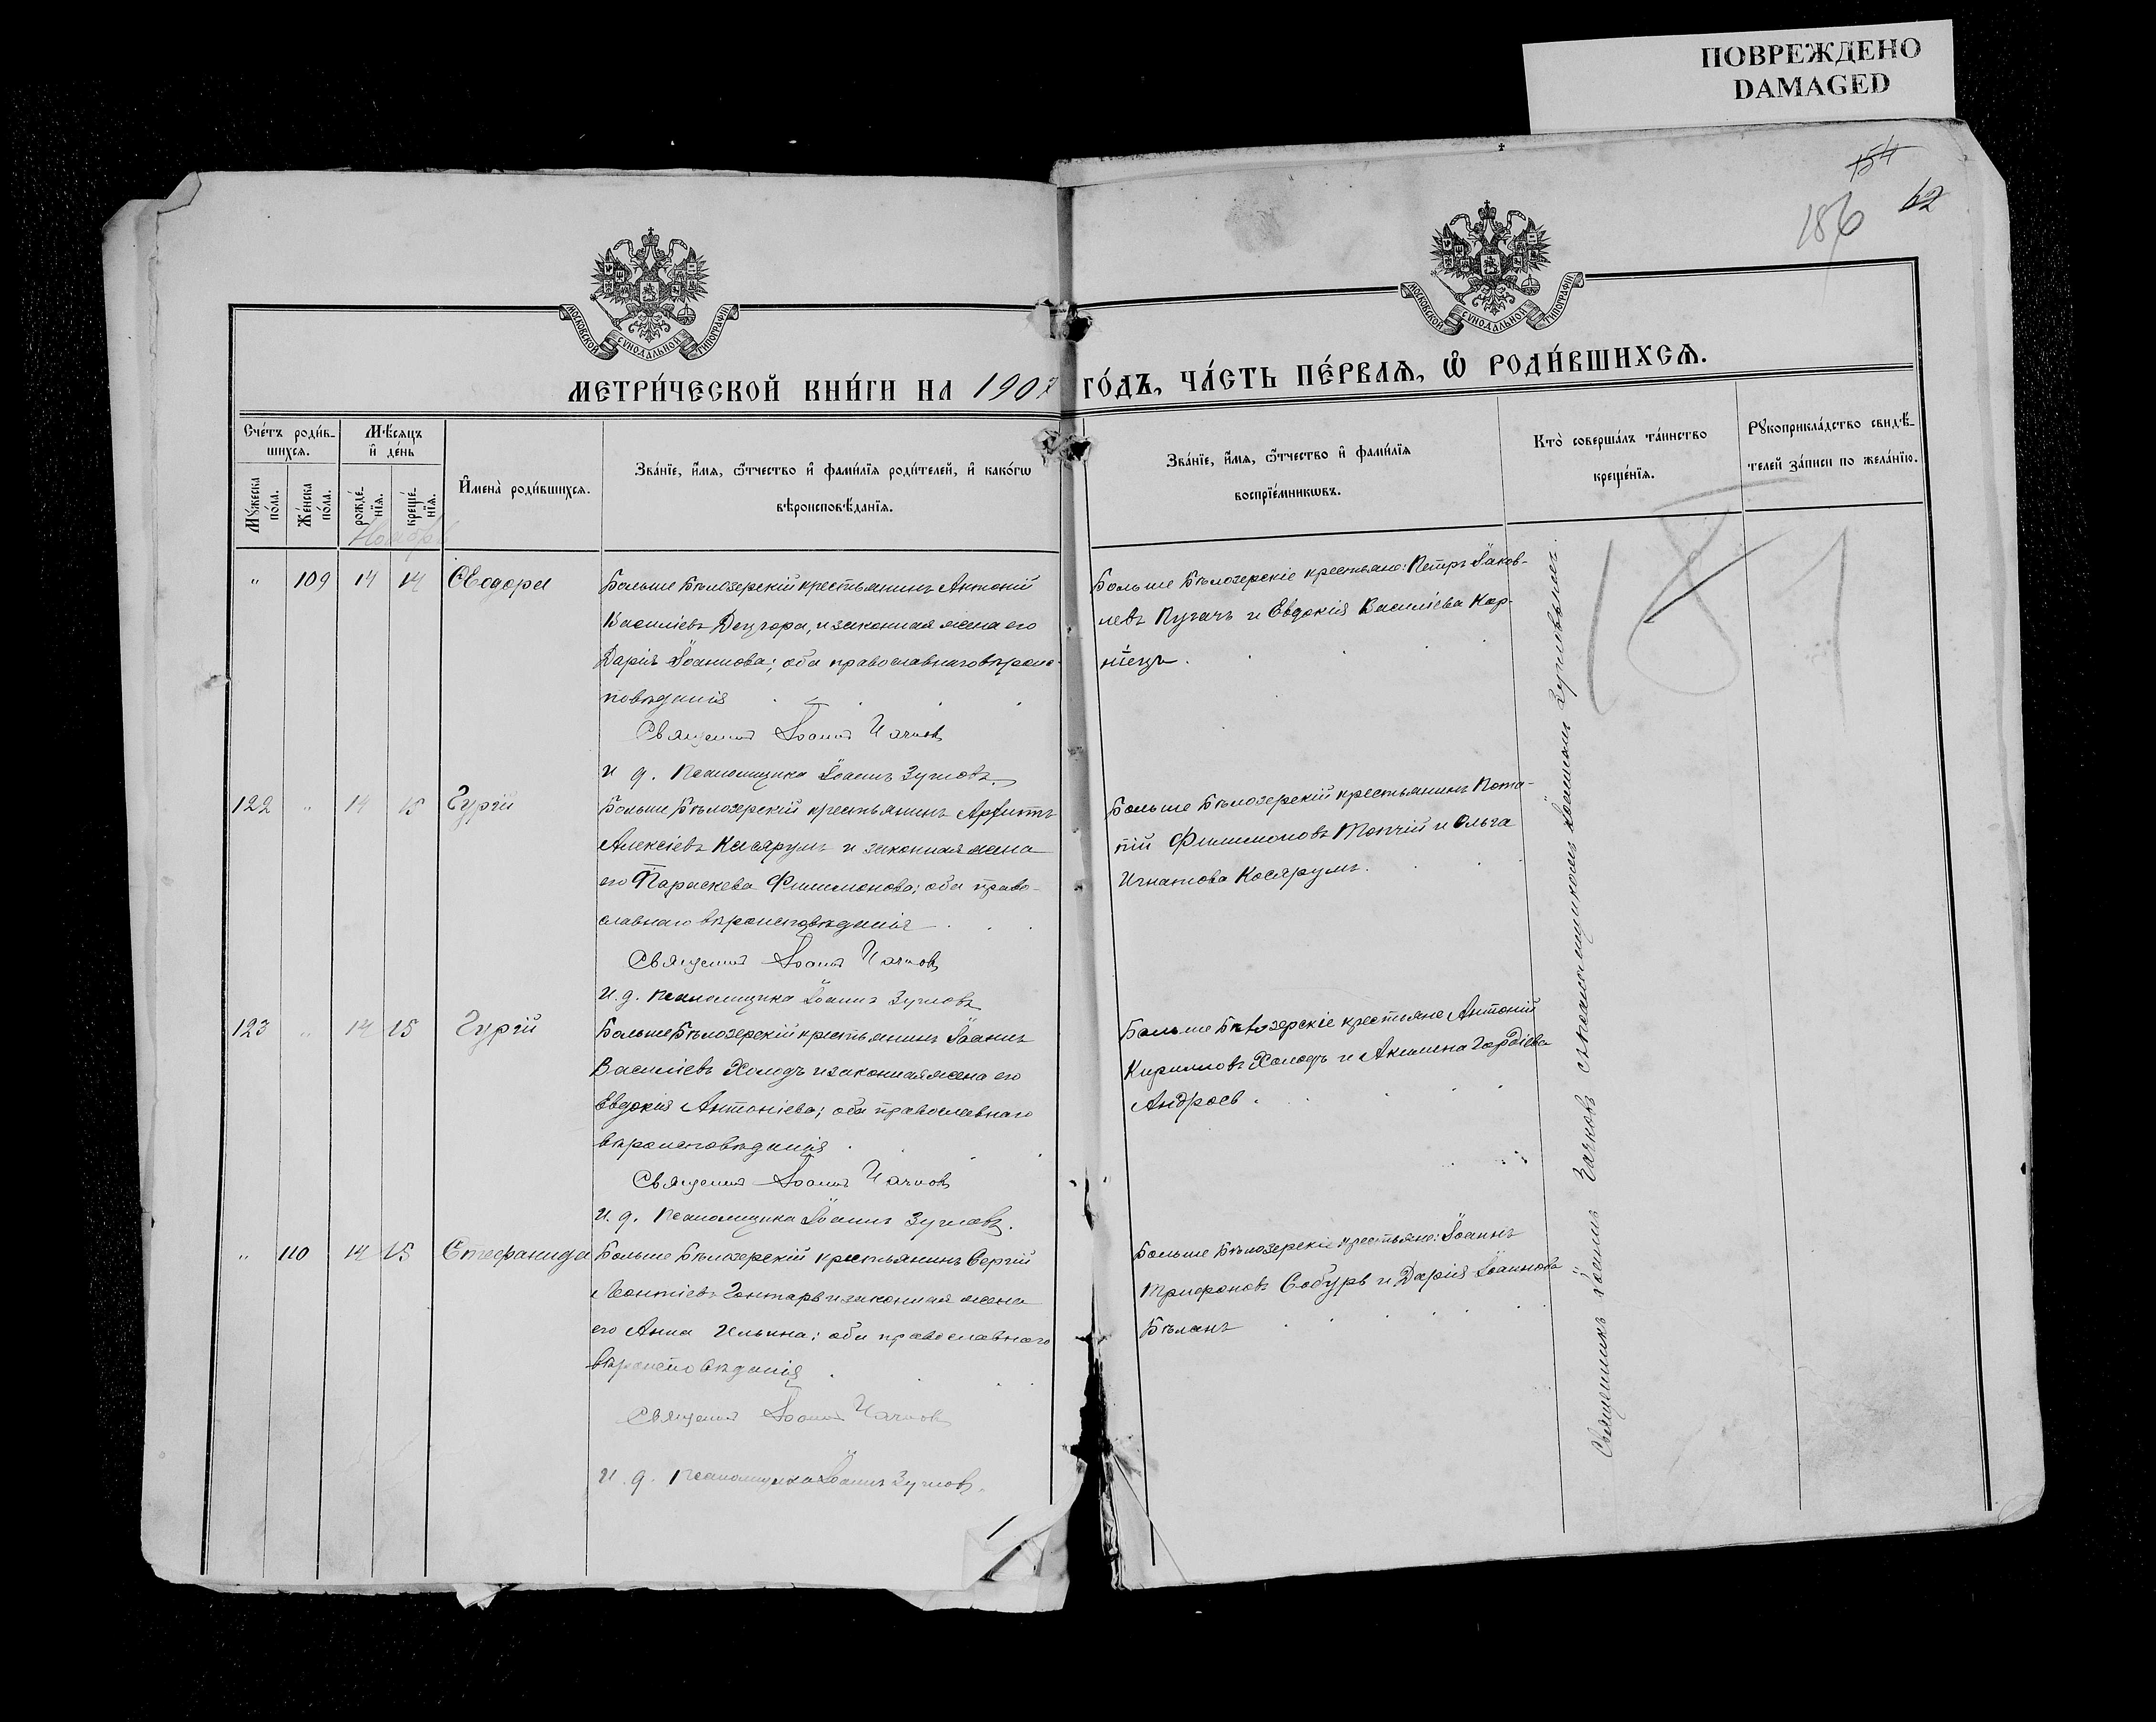 ПОВРЕЖДЕНО
DAMAGED
154
62
186
МОСКОВСКОЙ СѴНОДАЛЬНОЙ ТИПОГРАФІИ
МОСКОВСКОЙ СѴНОДАЛЬНОЙ ТИПОГРАФІИ
МЕТРИ́ЧЕСКОЙ КНИ́ГИ НА 190 ГО́ДЪ, ЧА́СТЬ ПЕ́РВАѦ, Ѡ҆ РОДИ́ВШИХСѦ.
Сче́тъ роди́в-
шихсѧ.
Мꙋ́жеска по́ла.
Же́нска по́ла.
Мѣ́сѧцъ и҆ де́нь
рожде́-нїѧ.
креще́-нїѧ.
И҆мена̀ роди́вшихсѧ.
Зва́нїе, и҆́мѧ, ѻ҆́тчество и҆ фами́лїѧ роди́телей, и҆ како́гѡ
вѣроисповѣ́данїѧ.
Зва́нїе, и҆́мѧ, ѻ҆́тчество и҆ фами́лїѧ
воспрїе́мникѡвъ.
Кто̀ соверша́лъ та́инство
креще́нїѧ.
Рꙋкоприкла́дство свидѣ́-
телей за́писи по жела́нїю.
Ноябрь
" 109 14 14 Ѳеодора
Больше Бѣлозерскій крестьянинъ Антоній
Василіевъ Децгора, и законная жена его
Дарія Іоаннова; оба православнаго вѣроис-
повѣданія
Священникъ Іоаннъ Чачковъ
И. д. Псаломщика Іоаннъ Зугловъ
Больше Бѣлозерскіе крестьяне: Петръ Іаков-
левъ Пугачъ и Евдокія Василіева Кор-
ніецъ.
122 " 14 15 Гурій
Больше Бѣлозерскій крестьянинъ Арѳитъ
Алексіевъ Касярумъ и законная жена
его Параскева Филимонова; оба право-
славнаго вѣроисповѣданія
Священникъ Іоаннъ Чачковъ
И. д. Псаломщика Іоаннъ Зугловъ
Больше Бѣлозерскій крестьянинъ Пота-
пій Филимоновъ Топчій и Ольга
Игнатова Касярумъ.
123 " 14 15 Гурій
Больше Бѣлозерскій крестьянинъ Іоаннъ
Василіевъ Холодъ и законная жена его
Евдокія Антоніева; оба православнаго
вѣроисповѣданія
Священникъ Іоаннъ Чачковъ
И. д. Псаломщика Іоаннъ Зугловъ.
Больше Бѣлозерскіе крестьяне Антоній
Кирилловъ Холодъ и Акилина Гордіева
Андроев.
" 110 14 15 Стефанида
Больше Бѣлозерскій крестьянинъ Сергій
Леонтіевъ Гонтарь и законная жена
его Анна Ильина; оба православнаго
вѣроисповѣданія
Священникъ Іоаннъ Чачковъ
И. д. Псаломщика Іоаннъ Зугловъ.
Больше Бѣлозерскіе крестьяне: Іоаннъ
Трифоновъ Собурь и Дарія Іоаннова
Бѣланъ
Священникъ Іоаннъ Чачковъ съ псаломщикомъ Іоанномъ Зугловымъ.
181